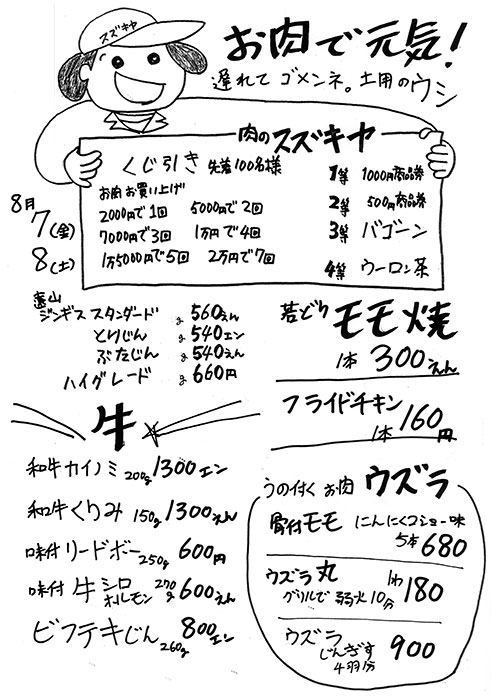 スズキヤ
お肉で元気!
遅れて ゴメンネ。土用のウシ
肉のスズキヤ
くじ引き 先着100名様
お肉お買い上げ
2000円で1回 5000円で2回
7000円で3回 1万円で4回
1万5000円で5回 2万円で7回
1等 1000円商品券
2等 500円商品券
3等 バゴーン
4等 ウーロン茶
8月
7(金)
8(土)
遠山
ジンギス スタンダード g 560えん
とりじん g 540エン
ぶたじん g 540えん
ハイグレード g 660円
若どり モモ焼
1本 300えん
フライドチキン
1本 160円
牛
和牛カイノミ 200g 1300エン
和牛くりみ 150g 1300えん
味付リードボー 250g 600円
味付 牛シロホルモン 270g 600えん
ビフテキじん 260g 800エン
うの付く お肉 ウズラ
骨付モモ にんにくコショー味
5本 680
ウズラ丸 1羽 180
グリルで 弱火10分
ウズラ じんぎす 900
4羽分